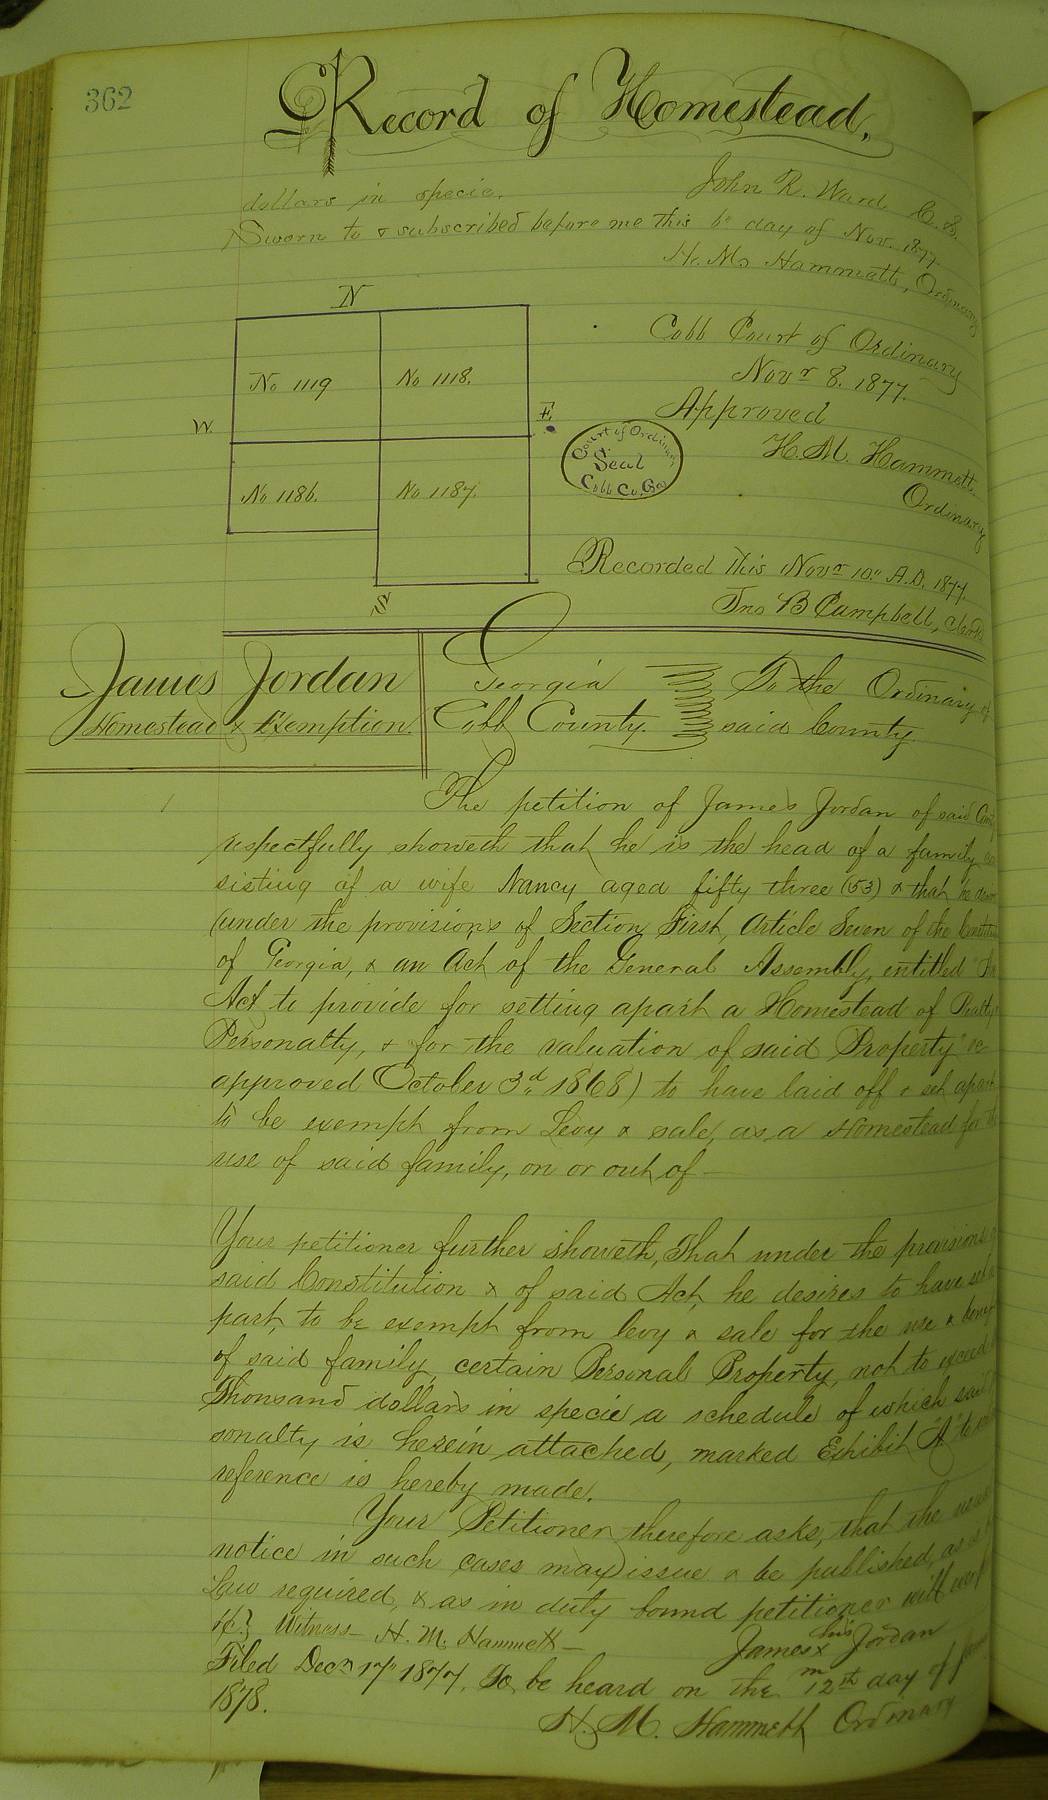 362
Record of Homestead,
dollars in specie. John R. Ward C. S.
Sworn to & subscribed before me this 6" day of Nov. 1877.
H. M. Hammett, Ordinary
N
No 1119 No 1118.
W. E
No 1186. No 1187.
S
Cobb Court of Ordinary
Novr 8. 1877.
Approved
Court of Ordinary
Seal
Cobb Co. Ga
H. M. Hammett
Ordinary
Recorded this Novr 10" A.D. 1877.
Jno B Campbell, Clerk
James Jordan
Homestead & Exemption.
Georgia To the Ordinary of
Cobb County. said County
The petition of James Jordan of said
respectfully showeth that he is the head of a family
sisting of a wife Nancy aged fifty three (53) & that he
(under the provisions of Section First, Article Seven of the
of Georgia, & an Act of the General Assembly, entitled
Act to provide for setting apart a Homestead of Realty
Personalty, & for the valuation of said Property" &c
approved October 3d 1868) to have laid off & set apart
to be exempt from Levy & sale, as a Homestead for the
use of said family, on or out of —
Your petitioner further showeth, That under the provisions
said Constitution & of said Act, he desires to have set a
part, to be exempt from levy & sale for the use &
of said family, certain Personal Property, not to exceed
Thousand dollars in specie a schedule of which said
sonalty is herein attached, marked Exhibit "A"
reference is hereby made.
Your Petitioner therefore asks, that the
notice in such cases may issue & be published, as
Law required, & as in duty bound petitioner will
Witness — H. M. Hammett — James his x Jordan
m
Filed Decr 17" 1877. To be heard on the 12th day of
1878.
H. M. Hammett Ordinary